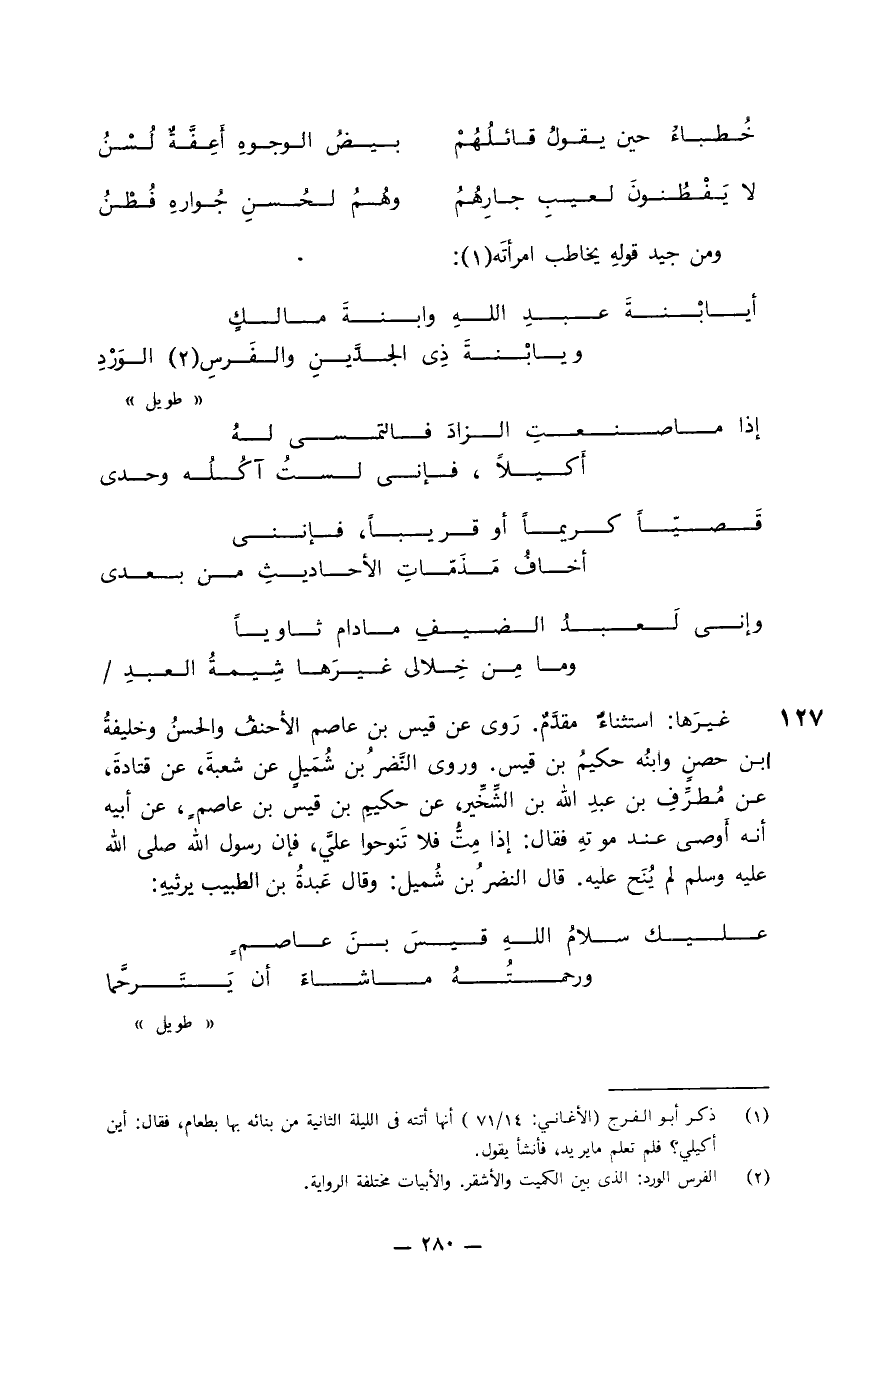 خُطباءُ حين يقولُ قائلُهُمْ بيضُ الوجوهِ أَعِفَّةٌ لُسْنُ
لا يَفْطُنونَ لعيبِ جارِهُمُ وهُمُ لحُسنِ جُوارهِ فُطْنُ
ومن جيد قولهِ يخاطب امرأتَه(١):
أيابْنةَ عبدِ اللهِ وابنةَ مالكٍ
ويابْنةَ ذِى الجدَّينِ والفَرسِ(٢) الوَرْدِ
« طويل »
إذا ماصنعتِ الزادَ فالتمسى لهُ
أَكيلاً ، فإنى لستُ آكُلُه وحدى
قَصيّاً كريماً أو قريباً، فإننى
أخافُ مَذَمّاتِ الأحاديثِ من بعدى
وإنى لَعبدُ الضيفِ مادام ثاوياً
وما مِن خِلالى غيرَها شِيمةُ العبدِ /
١٢٧ غيرَها: استثناءٌ مقدَّمٌ. رَوى عن قيس بن عاصم الأحنفُ والحسنُ وخليفةُ
ابن حصنٍ وابنُه حكيمُ بن قيس. وروى النَّضرُ بن شُمَيلٍ عن شعبةَ، عن قتادةَ،
عن مُطرِّفِ بن عبدِ الله بن الشِّخِّير، عن حكيمِ بن قيس بن عاصمٍ، عن أبيه
أنه أَوصى عند موتهِ فقال: إذا مِتُّ فلا تَنوحوا عليَّ، فإن رسول الله صلى الله
عليه وسلم لم يُنَح عليه. قال النضرُ بن شُميل: وقال عَبدةُ بن الطبيب يرثيهِ:
عليك سلامُ اللهِ قيسَ بنَ عاصمٍ
ورحمتُهُ ماشاءَ أن يَتَرحَّما
« طويل »
(١) ذكر أبو الفرج (الأغاني: ٧١/١٤ ) أنها أتته فى الليلة الثانية من بنائه بها بطعام، فقال: أين
أكيلي؟ فلم تعلم مايريد، فأنشأ يقول.
(٢) الفرس الورد: الذى بين الكميت والأشقر. والأبيات مختلفة الرواية.
— ٢٨٠ —